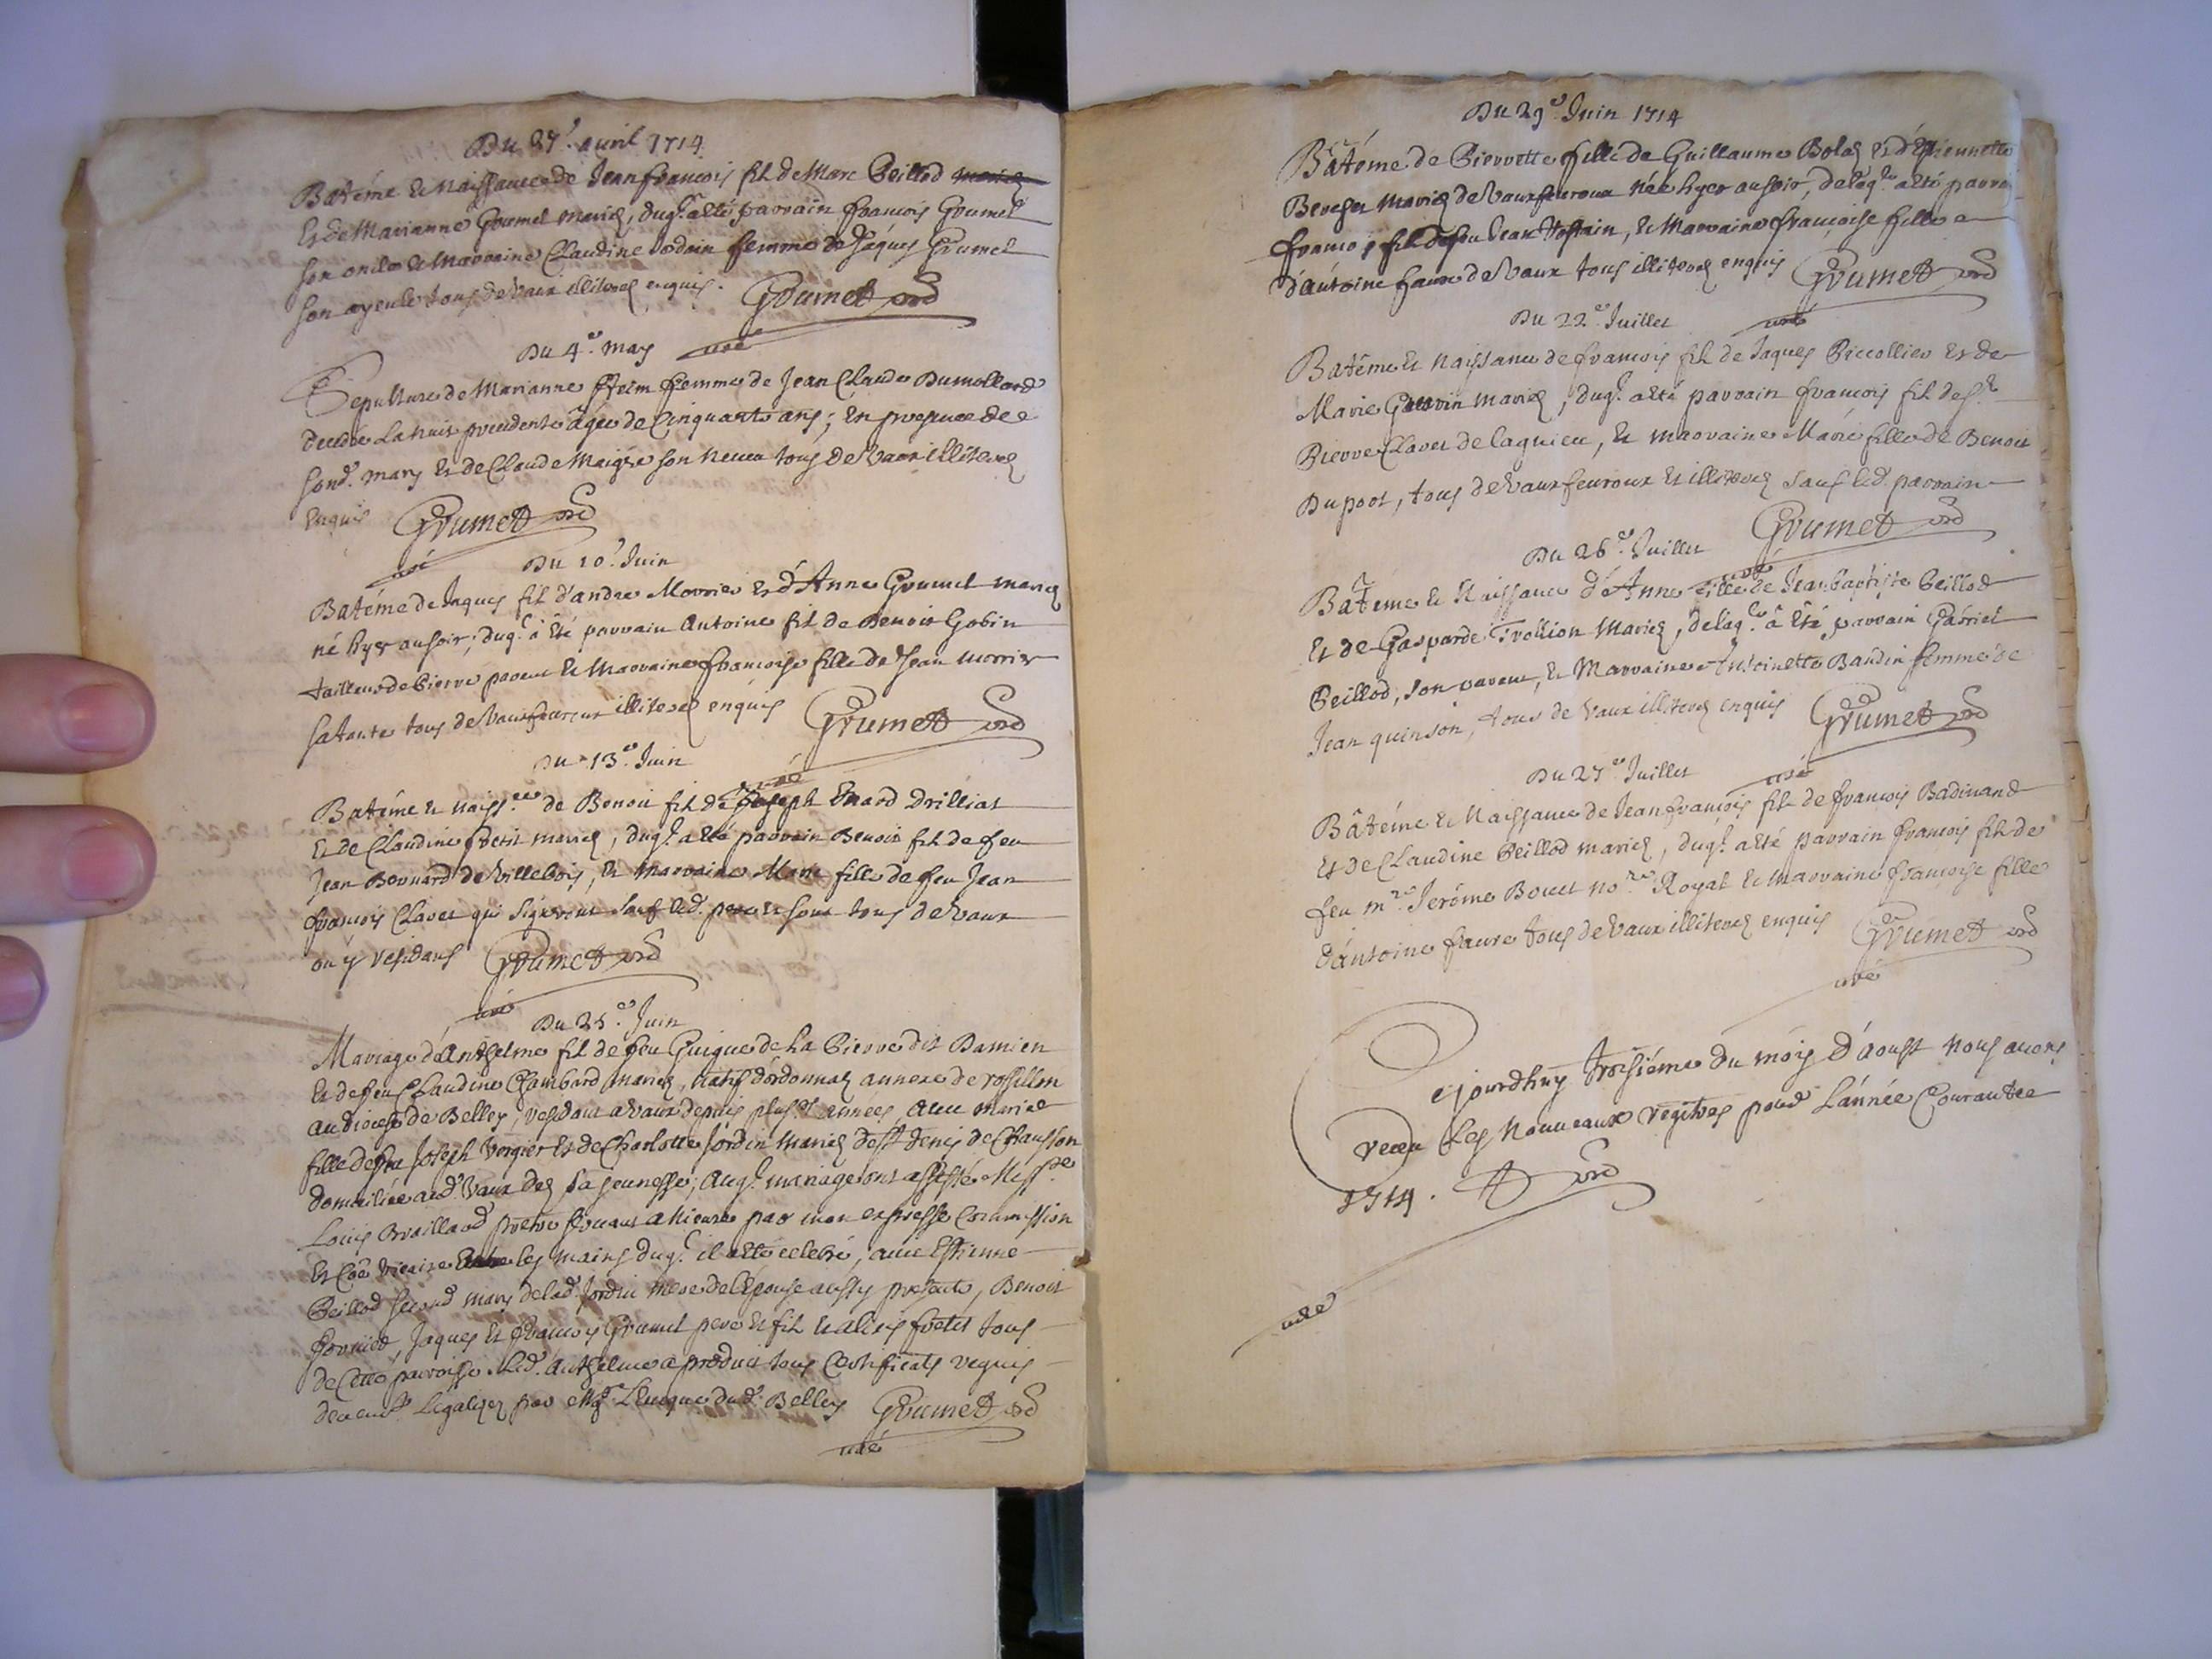 Du 27e. avril 1714
Batéme et Naissance de Jean francois fil de Marc Peillod
Et de Marianne Grumet mariez, duql. a été parrain francois Grumet
son oncle et Marraine Claudine femme de Jaques Grumet
son ayeule tous de Vaux illiterez enquis. Grumet
curé
Du 4e. may
Sepulture de Marianne femme de Jean Claude Dumollard
decedée La nuit precedente âgée de Cinquante ans; En presence de
sond. mary Et de Claude Maigre son neveu tous de Vaux illiterez
Enquis Grumet
curé
Du 10e. Juin
Batéme de Jaques fil d'andre Morrier et d'Anne Grumet mariez
né hyer au soir; duql. a été parrain Antoine fil de Benoit Gobin
tailleur de Pierre parent Et Marraine francoise fille de Jean morrier
sa tante tous de Vauxfeuroux illiterez enquis Grumet
curé
Du 13e. Juin
Batéme et naiss.ce de Benoit fil de Joseph Drillias
Et de Claudine mariez, duql. a été parrain Benoit fil de feu
Jean Bernard de Villebois, Et Marraine Marie fille de feu Jean
francois Claret qui signeront sauf led. pere Et sont tous de Vaux
ou y residans Grumet
curé
Du 25e. Juin
Mariage d'Anthelme fil de feu Guigue de La Pierre dit Damien
Et de feu Claudine Chambard mariez, natif d'ordonnaz annexe de rossillon
au diocese de Belley, residant a Vaux depuis plusrs. années, avec mariee
fille de feu Joseph Vergier Et de Charlotte Jordin mariez de st denis de Chausson
domiciliée aud. Vaux dez sa jeunesse; auql. mariage ont assisté Messre.
Louis Bruillard pretre par mon expresse Commission
Et les mains duql. il a été celebré, avec Estienne
Peillod second mary de lad. Jordin mere de l'épouse aussy presente, Benoit
Jaques Et francois Grumet pere Et fil tous
de Cette parroisse. Led. Anthelme a produit tous Certificats requis
Legalisez par Mgr. L'Eveque dud. Belley Grumet
curé
Du 29e. Juin 1714
Batéme de Pierrette fille de Guillaume Bolaz et d'Etiennette
Berger Mariez de Vauxfeuroux née hyer au soir, de laqle. a été parrain
francois fil de feu Jean Et Marraine francoise fille
d'Antoine faure de Vaux tous illiterez enquis Grumet
curé
Du 22e. Juillet
Batême et naissance de francois fil de Jaques Piccollier et de
Marie mariez, duql. a été parrain francois fil de sr.
Pierre Claret de lagnieu, et marraine Marie fille de Benoit
Duport, tous de Vauxfeuroux et illiterez sauf led. parrain
Grumet
curé
Du 26e. Juillet
Batême et Naissance d'Anne fille de Jean baptiste Peillod
Et de Gasparde Trollion mariez, de laqle. a été parrain Gabriel
Peillod, son parent, et Marraine Antoinette Baudin femme de
Jean quinson, tous de Vaux illiterez enquis Grumet
curé
Du 27e. Juillet
Bâtéme et Naissance de Jean francois fil de francois Badinand
Et de Claudine Peillod mariez, duql. a été parrain francois fil de
feu mre. Jerôme Bouet nore. Royal et marraine francoise fille
d'antoine faure tous de Vaux illiterez enquis Grumet
curé
Cejourdhuy troisiéme du mois d'aoust nous avons
receu Les Nouveaux regitres pour L'année Courante
1714.
curé